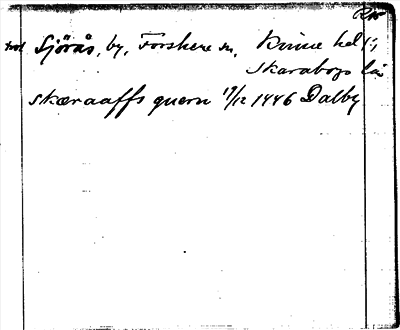 Sjörås, by, Forshem sn. Kinne hd
Skaraborgs län
skæraaffs quern 17/12 1446 Dalby